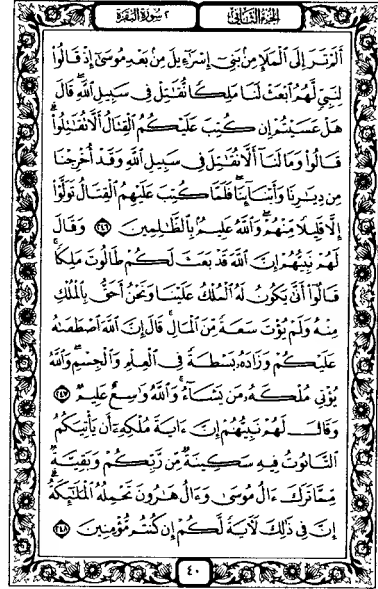 الجزء الثاني ٢ سورة البقرة
أَلَمْ تَرَ إِلَى ٱلْمَلَإِ مِنۢ بَنِىٓ إِسْرَٰٓءِيلَ مِنۢ بَعْدِ مُوسَىٰٓ إِذْ قَالُوا۟
لِنَبِىٍّ لَّهُمُ ٱبْعَثْ لَنَا مَلِكًا نُّقَٰتِلْ فِى سَبِيلِ ٱللَّهِ ۖ قَالَ
هَلْ عَسَيْتُمْ إِن كُتِبَ عَلَيْكُمُ ٱلْقِتَالُ أَلَّا تُقَٰتِلُوا۟ ۖ
قَالُوا۟ وَمَا لَنَآ أَلَّا نُقَٰتِلَ فِى سَبِيلِ ٱللَّهِ وَقَدْ أُخْرِجْنَا
مِن دِيَٰرِنَا وَأَبْنَآئِنَا ۖ فَلَمَّا كُتِبَ عَلَيْهِمُ ٱلْقِتَالُ تَوَلَّوْا۟
إِلَّا قَلِيلًا مِّنْهُمْ ۗ وَٱللَّهُ عَلِيمٌۢ بِٱلظَّٰلِمِينَ ٢٤٦ وَقَالَ
لَهُمْ نَبِيُّهُمْ إِنَّ ٱللَّهَ قَدْ بَعَثَ لَكُمْ طَالُوتَ مَلِكًا ۚ
قَالُوٓا۟ أَنَّىٰ يَكُونُ لَهُ ٱلْمُلْكُ عَلَيْنَا وَنَحْنُ أَحَقُّ بِٱلْمُلْكِ
مِنْهُ وَلَمْ يُؤْتَ سَعَةً مِّنَ ٱلْمَالِ ۚ قَالَ إِنَّ ٱللَّهَ ٱصْطَفَىٰهُ
عَلَيْكُمْ وَزَادَهُۥ بَسْطَةً فِى ٱلْعِلْمِ وَٱلْجِسْمِ ۖ وَٱللَّهُ
يُؤْتِى مُلْكَهُۥ مَن يَشَآءُ ۚ وَٱللَّهُ وَٰسِعٌ عَلِيمٌ ٢٤٧
وَقَالَ لَهُمْ نَبِيُّهُمْ إِنَّ ءَايَةَ مُلْكِهِۦٓ أَن يَأْتِيَكُمُ
ٱلتَّابُوتُ فِيهِ سَكِينَةٌ مِّن رَّبِّكُمْ وَبَقِيَّةٌ
مِّمَّا تَرَكَ ءَالُ مُوسَىٰ وَءَالُ هَٰرُونَ تَحْمِلُهُ ٱلْمَلَٰٓئِكَةُ ۚ
إِنَّ فِى ذَٰلِكَ لَءَايَةً لَّكُمْ إِن كُنتُم مُّؤْمِنِينَ ٢٤٨
٤٠